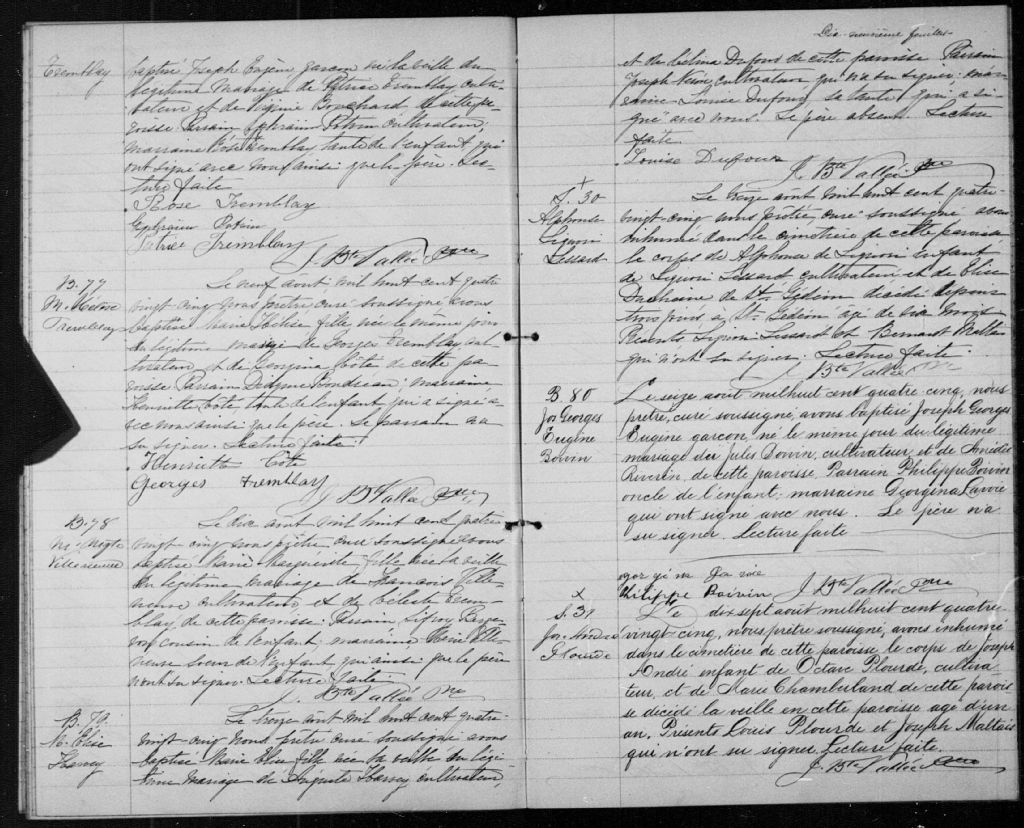 Tremblay
baptisé Joseph Eugène garçon né la veille du
légitime mariage de Patrice Tremblay culti-
vateur et de Virginie Bouchard de cette pa-
roisse Parrain Ephraim Potvin cultivateur,
marraine Rose Tremblay tante de l'enfant qui
ont signé avec nous ainsi que le père. Lec-
ture faite
Rose Tremblay
Ephraim Potvin
Patrice Tremblay
J. Bte Vallée Ptre
B. 77
M.
Tremblay
Le neuf août mil huit cent quatre
vingt cinq nous prêtre curé soussigné avons
baptisé Marie fille née le même jour
du légitime mariage de Georges Tremblay cul-
tivateur et de Georgina Côté de cette pa-
roisse Parrain Boudreau; marraine
Henriette Côté tante de l'enfant qui a signé a-
vec nous ainsi que le père. Le parrain n'a
su signer. Lecture faite.
Henriette Côté
Georges Tremblay
J. Bte Vallée Ptre
B. 78
M. Mgte
Villeneuve
Le dix août mil huit cent quatre
vingt cinq nous prêtre curé soussigné avons
baptisé Marie Marguerite fille née la veille
du légitime mariage de François Ville-
neuve cultivateur et de Céleste Trem-
blay de cette paroisse. Parrain
cousin de l'enfant, marraine Marie Ville-
neuve soeur de l'enfant qui ainsi que le père
n'ont su signer. Lecture faite
J. Bte Vallée Ptre
B. 79
M. Elise
Harvey
Le treize août mil huit cent quatre-
vingt cinq nous prêtre curé soussigné avons
baptisé Marie Elise fille née la veille du légi-
time mariage de Auguste Harvey cultivateur,
Dix-neuvième feuillet
et de Delima Dufour de cette paroisse Parrain
Joseph cultivateur qui n'a su signer mar-
raine Louise Dufour, sa tante, qui a si-
gné avec nous. Le père absent. Lecture
faite
Louise Dufour
J. Bte Vallée Ptre
S. 30
Alphonse
Liguori
Lessard
Le treize août mil huit cent quatre-
vingt cinq nous prêtre curé soussigné avons
inhumé dans le cimetière de cette paroisse
le corps de Alphonse de Liguori enfant
de Liguori Lessard cultivateur et de Elise
Duchaine de St. Gédéon décédé depuis
trois jours à St. Gédéon agé de six mois
Présents Liguori Lessard et Bernard
qui n'ont su signer. Lecture faite.
J. Bte Vallée Ptre
B. 80
Jos Georges
Eugène
Boivin
Le seize aout mil huit cent quatre cinq, nous
prêtre, curé soussigné, avons baptisé Joseph Georges
Eugène garçon, né le même jour du légitime
mariage de Jules Boivin, cultivateur, et de Amédée
Riverin, de cette paroisse. Parrain Philippe Boivin
oncle de l'enfant; marraine Georgina Lavoie
qui ont signé avec nous. Le père n'a
su signer. Lecture faite
gorgina Lavoie
Philippe Boivin J. Bte Vallée Ptre
S. 31
Jos. André
Plourde
Le dix sept aout mil huit cent quatre
vingt-cinq, nous prêtre soussigné, avons inhumé
dans le cimetière de cette paroisse le corps de Joseph
André enfant de Octave Plourde, cultiva
teur, et de Marie Chamberland de cette parois
se décédé la veille en cette paroisse agé d'un
an. Présents Louis Plourde et Joseph Maltais
qui n'ont su signer. Lecture faite.
J. Bte Vallée Ptre